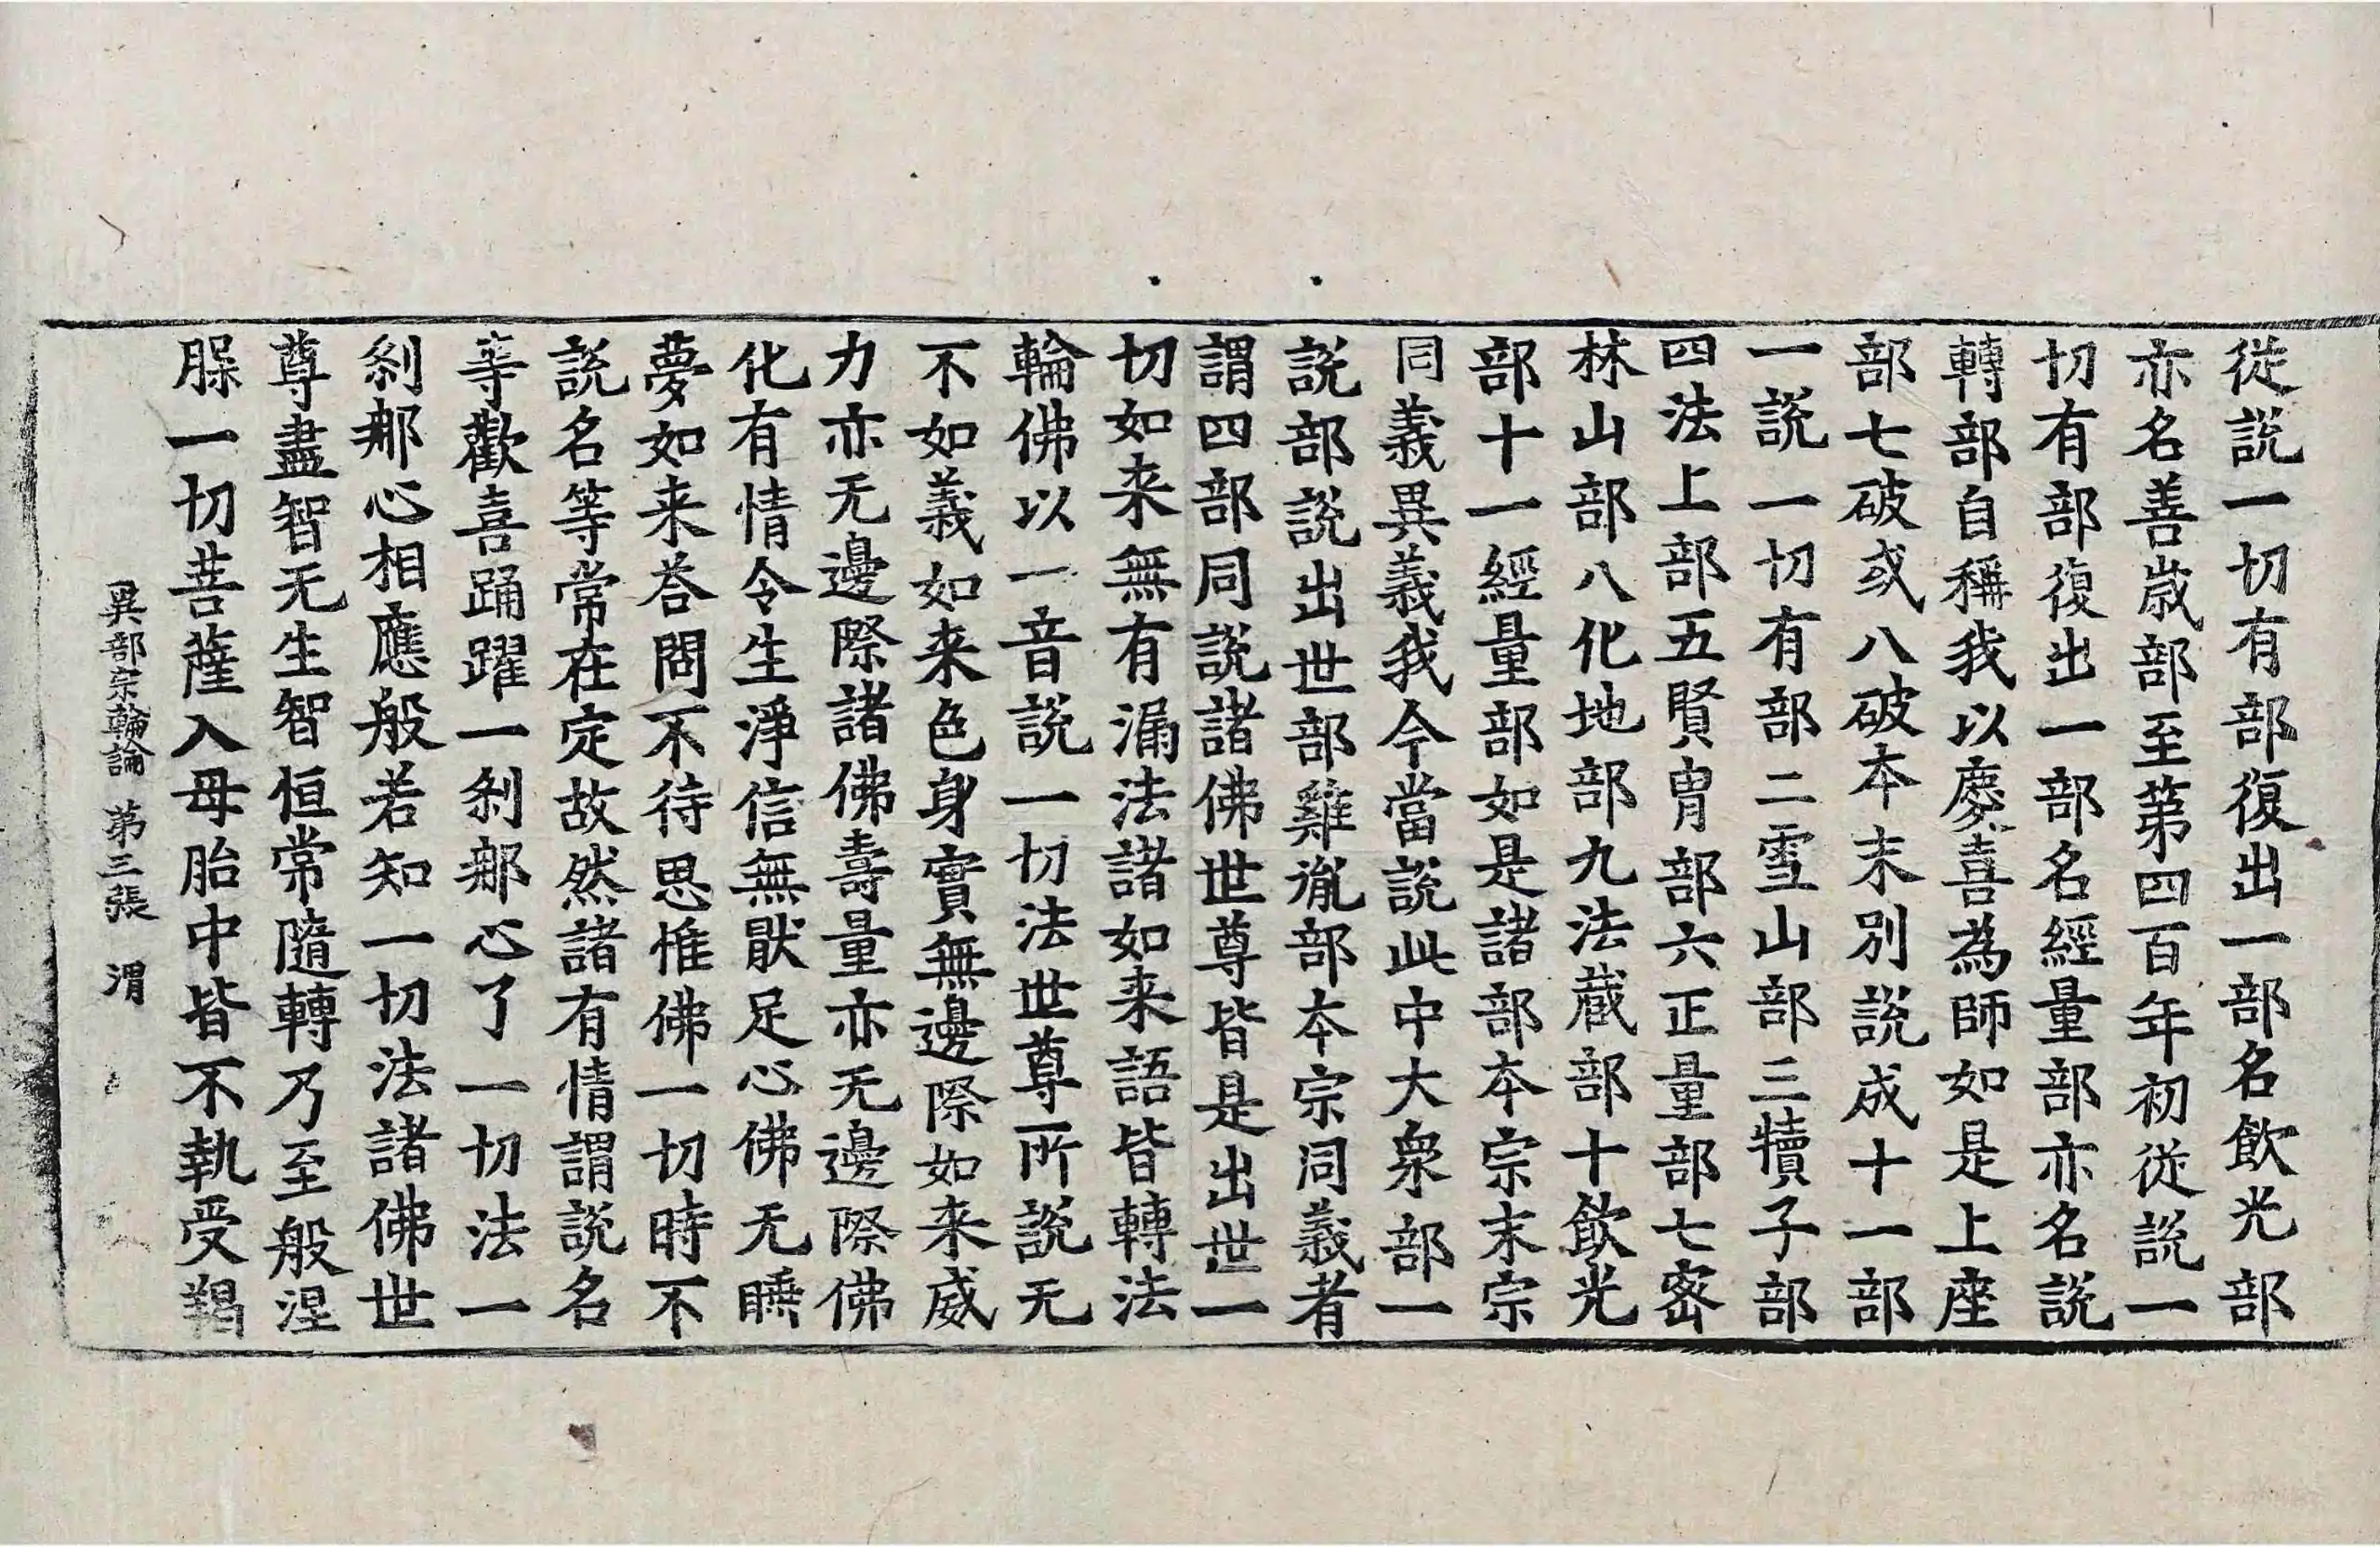 從說一切有部復出一部名飲光部
亦名善歳部至第四百年初從說一
切有部復出一部名經量部亦名說
轉部自稱我以慶喜為師如是上座
部七破或八破本末別說成十一部
一說一切有部二雪山部三犢子部
四法上部五賢胄部六正量部七密
林山部八化地部九法蔵部十飲光
部十一經量部如是諸部本宗末宗
同義異義我今當說此中大衆部一
說部說出世部雞胤部本宗同義者
謂四部同說諸佛世尊皆是出世一
切如来無有漏法諸如来語皆轉法
輪佛以一音說一切法世尊所說无
不如義如来色身實無邊際如来威
力亦无邊際諸佛壽量亦无邊際佛
化有情令生淨信無猒足心佛无睡
夢如来荅問不待思惟佛一切時不
說名等常在定故然諸有情謂說名
等歡喜踊躍一刹那心了一切法一
刹那心相應般若知一切法諸佛世
尊盡智无生智恒常隨轉乃至般涅
脵一切菩薩入母胎中皆不執受羯
異部宗輪論 第三張 渭